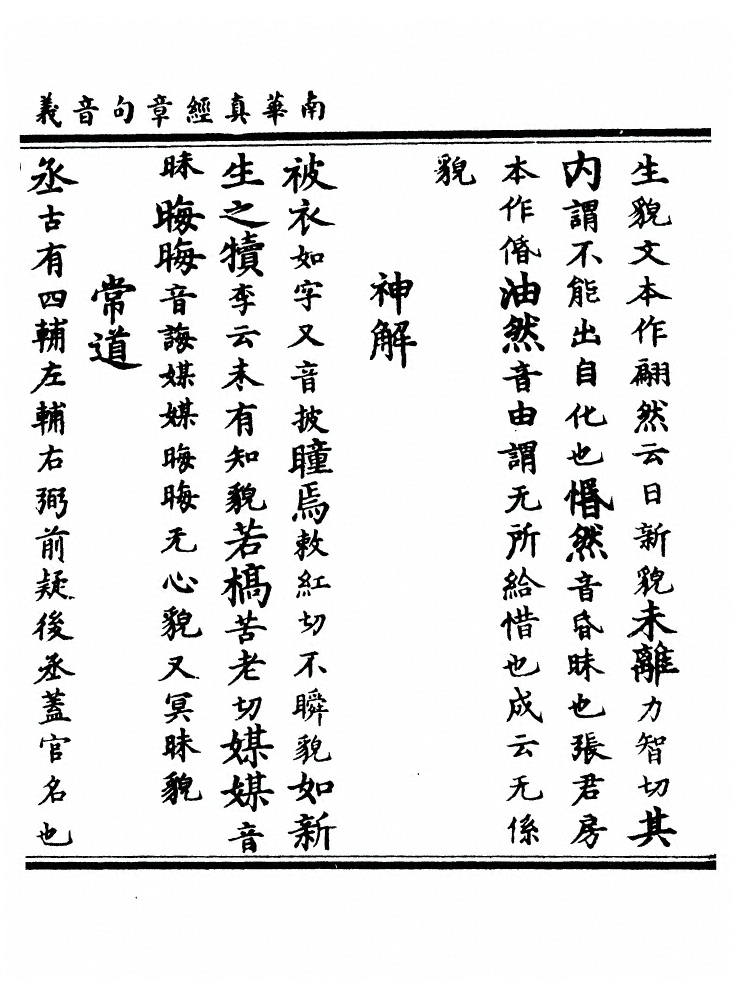 南華真經章句音義
生貌文本作翩然云日新貌未離力智切其
内謂不能出自化也惽然音昬昧也張君房
本作油然音由謂无所給惜也成云无係
貌
神解
被衣如字又音披瞳焉敕紅切不瞬貌如新
生之犢李云未有知貌若槁苦老切媒媒音
昧晦晦音誨媒媒晦晦无心貌又冥昧貌
常道
丞古有四輔左輔右弼前疑後丞蓋官名也